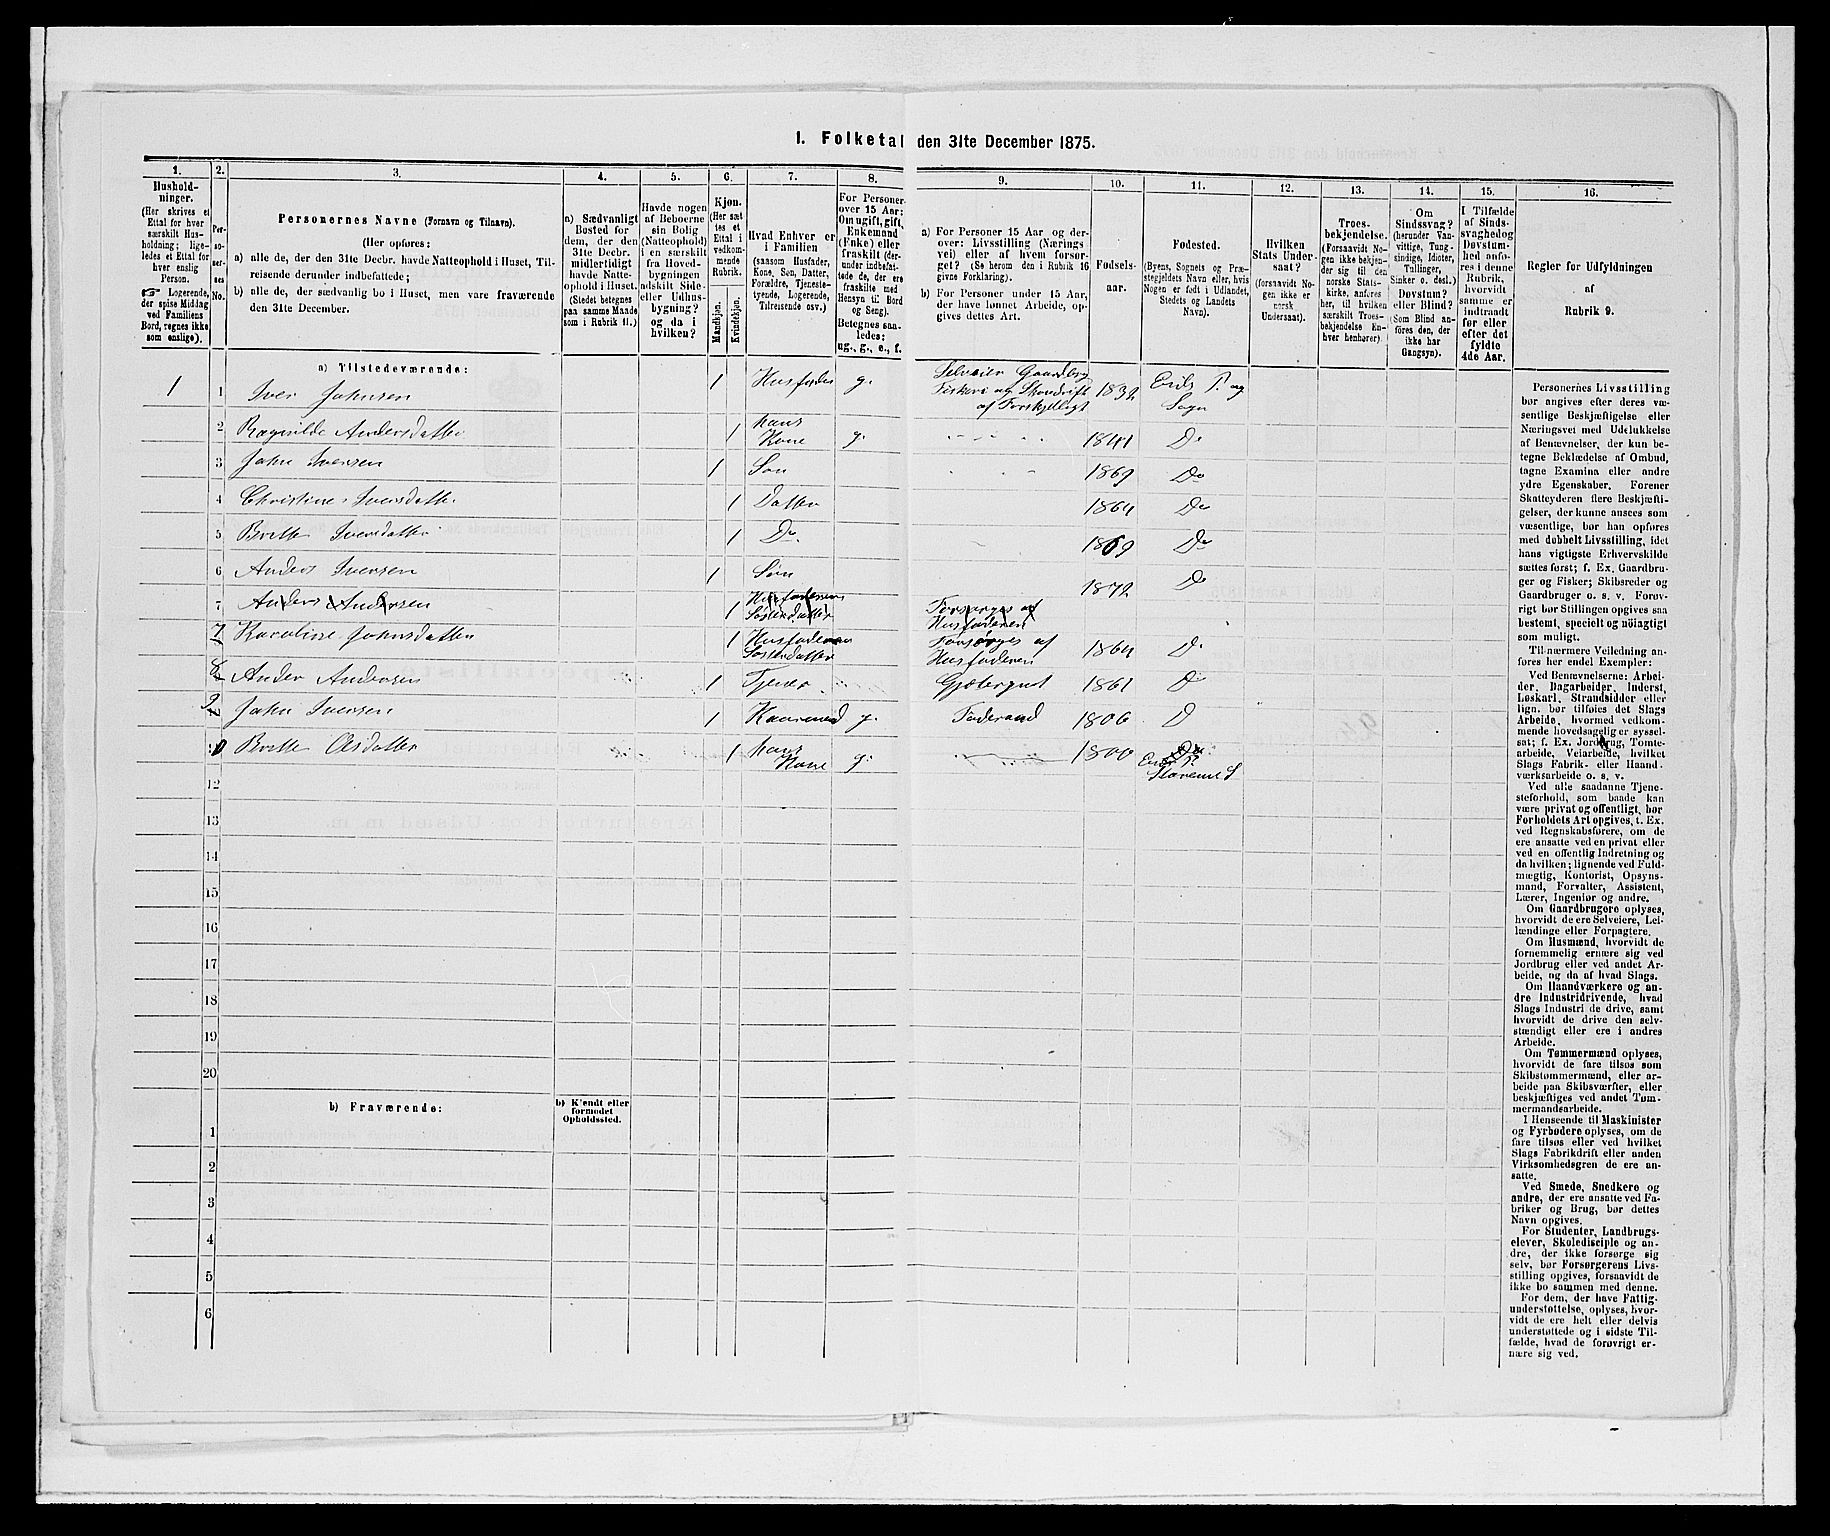 I. Folketal den 31te December 1875.
1. 2. 3. 4. 5. 6. 7. 8. 9. 10. 11. 12. 13. 14. 15. 16.
Hushold-
ninger.
(Her skrives et
Ettal for hver
særskilt Hus-
holdning; lige-
ledes et Ettal for
hver enslig
Person.
☞ Logerende,
der spise Middag
ved Familiens
Bord, regnes ikke
som enslige).
Per-
so-
ner-
nes
No.
Personernes Navne (Fornavn og Tilnavn).
(Her opføres:
a) alle de, der den 31te Decbr. havde Natteophold i Huset, Til-
reisende derunder indbefattede;
b) alle de, der sædvanlig bo i Huset, men vare fraværende
den 31te December.
a) Sædvanligt
Bosted for
dem, der den
31te Decbr.
midlertidigt
havde Natte-
ophold i Huset.
(Stedet betegnes
paa samme Maade
som i Rubrik 11.)
Havde nogen
af Beboerne
sin Bolig
(Natteophold)
i en særskilt
fra Hoved-
bygningen
adskilt Side-
eller Udhus-
bygning?
og da i
hvilken?
Kjøn.
(Her sæt-
tes et
Ettal i
vedkom-
mende
Rubrik.
Mandkjøn.
Kvindekjøn.
Hvad Enhver er
i Familien
(saasom Husfader,
Kone, Søn, Datter,
Forældre, Tjeneste-
tyende, Logerende,
Tilreisende osv.)
For Personer
over 15 Aar:
Om ugift, gift,
Enkemand
(Enke) eller
fraskilt (der-
under indbefat-
tede de, der ere
fraskilte med
Hensyn til Bord
og Seng).
Betegnes saa-
ledes:
ug., g., e., f.
a) For Personer 15 Aar og der-
over: Livsstilling (Nærings-
vei) eller af hvem forsør-
get? (Se herom den i Rubrik 16
givne Forklaring).
b) For Personer under 15 Aar,
der have lønnet Arbeide, op-
gives dettes Art.
Fødsels-
aar.
Fødested.
(Byens, Sognets og Præ-
stegjeldets Navn eller, hvis
Nogen er født i Udlandet,
Stedets og Landets
Navn).
Hvilken
Stats Under-
saat?
(forsaavidt No-
gen ikke er
norsk
Undersaat).
Troes-
bekjendelse.
(Forsaavidt No-
gen ikke bekjen-
der sig til den
norske Stats-
kirke, anføres
her, til hvilken
særskilt Troes-
bekjendelse En-
hver henhører).
Om
Sindssvag?
(herunder Van-
vittige, Tung-
sindige, Idioter,
Tullinger,
Sinker o. desl.)
Døvstum?
eller Blind?
(Som Blind an-
føres den, der
ikke har
Gangsyn).
I Tilfælde
af Sinds-
svaghed og
Døvstum-
hed anfø-
res i denne
Rubrik,
hvorvidt
samme er
indtraadt
før eller
efter det
fyldte
4de Aar.
Regler for Udfyldningen
af
Rubrik 9.
a) Tilstedeværende:
1 1 Iver Johnsen 1 Husfader g. Selveier Gaardbrug Fiskeri og Skovdrift af Forskjelligt 1832 Eids P. og Sogn
2 Ragnilde Andersdatter 1 hans Kone g. 1841 Do
3 John Iversen 1 Søn 1869 Do
4 Christine Iversdatter 1 Datter 1864 Do
5 Britte Iversdatter 1 Do. 1869 Do
6 Anders Iversen 1 Søn 1872 Do
7 Anders Andersen 1 Husfaderens Søsterdatter Forsørges af Husfaderen
7 Karoline Johnsdatter 1 Husfaderens Søsterdatter Forsørges af Husfaderen 1864 Do
8 Anders Andersen 1 Tjener Gjætergut 1861 Do
9 John Iversen 1 Kaarmand g. Føderaad 1806 Do
10 Britte Olsdatter 1 hans Kone g. 1800 Eids P.
12
13
14
15
16
17
18
19
20
b) Fraværende:
b) Kjendt eller
formodet
Opholdssted.
1
2
3
4
5
6
Personernes Livsstilling
bør angives efter deres væ-
sentlige Beskjæftigelse eller
Næringsvei med Udelukkelse
af Benævnelser, der kun be-
tegne Beklædelse af Ombud,
tagne Examina eller andre
ydre Egenskaber. Forener
Skatteyderen flere Beskjæfti-
gelser, der kunne ansees som
væsentlige, bør han opføres
med dobbelt Livsstilling, idet
hans vigtigste Erhvervskilde
sættes først; f. Ex. Gaardbru-
ger og Fisker; Skibsreder og
Gaardbruger o. s. v. Forøv-
rigt bør Stillingen opgives saa
bestemt, specielt og nöiagtigt
som muligt.
Til nærmere Veiledning an-
føres her endel Exempler:
Ved Benævnelserne: Arbei-
der, Dagarbeider, Inderst,
Løskarl, Strandsidder eller
lign. bør tilføies det Slags
Arbeide, hvormed vedkom-
mende hovedsagelig er syssel-
sat; f. Ex. Jordbrug, Tomte-
arbeide, Veiarbeide, hvilket
Slags Fabrik- eller Haand-
værksarbeide o. s. v.
Ved alle saadanne Tjene-
steforhold, som baade kan
være privat og offentligt, bør
Forholdets Art opgives, t. Ex.
ved Regnskabsførere, om de
ere ansatte ved en privat eller
ved en offentlig Indretning og
da hvilken; lignende ved Fuld-
mægtig, Kontorist, Opsyns-
mand, Forvalter, Assistent,
Lærer, Ingeniør og andre.
Om Gaardbrugere oplyses,
hvorvidt de ere Selveiere, Lei-
lændinge eller Forpagtere.
Om Husmænd, hvorvidt de
fornemmelig ernære sig ved
Jordbrug eller ved andet Ar-
beide, og da af hvad Slags.
Om Haandværkere og an-
dre Industridrivende, hvad
Slags Industri de drive, samt
hvorvidt de drive den selv-
stændigt eller ere i andres
Arbeide.
Om Tømmermænd oplyses,
hvorvidt de fare tilsøs som
Skibstømmermænd, eller ar-
beide paa Skibsværfter, eller
beskjæftiges ved andet Tøm-
mermandsarbeide.
I Henseende til Maskinister
og Fyrbødere oplyses, om de
fare tilsøs eller ved hvilket
Slags Fabrikdrift eller anden
Virksomhedsgren de ere an-
satte.
Ved Smede, Snedkere og
andre, der ere ansatte ved Fa-
briker og Brug, bør dettes
Navn opgives.
For Studenter, Landbrugs-
elever, Skoledisciple og an-
dre, der ikke forsørge sig
selv, bør Forsørgerens Livs-
stilling opgives, forsaavidt de
ikke bo sammen med denne.
For dem, der have Fattig-
understøttelse, oplyses, hvor-
vidt de ere helt eller delvis
understøttede og i sidste Til-
fælde, hvad de forøvrigt er-
nære sig ved.